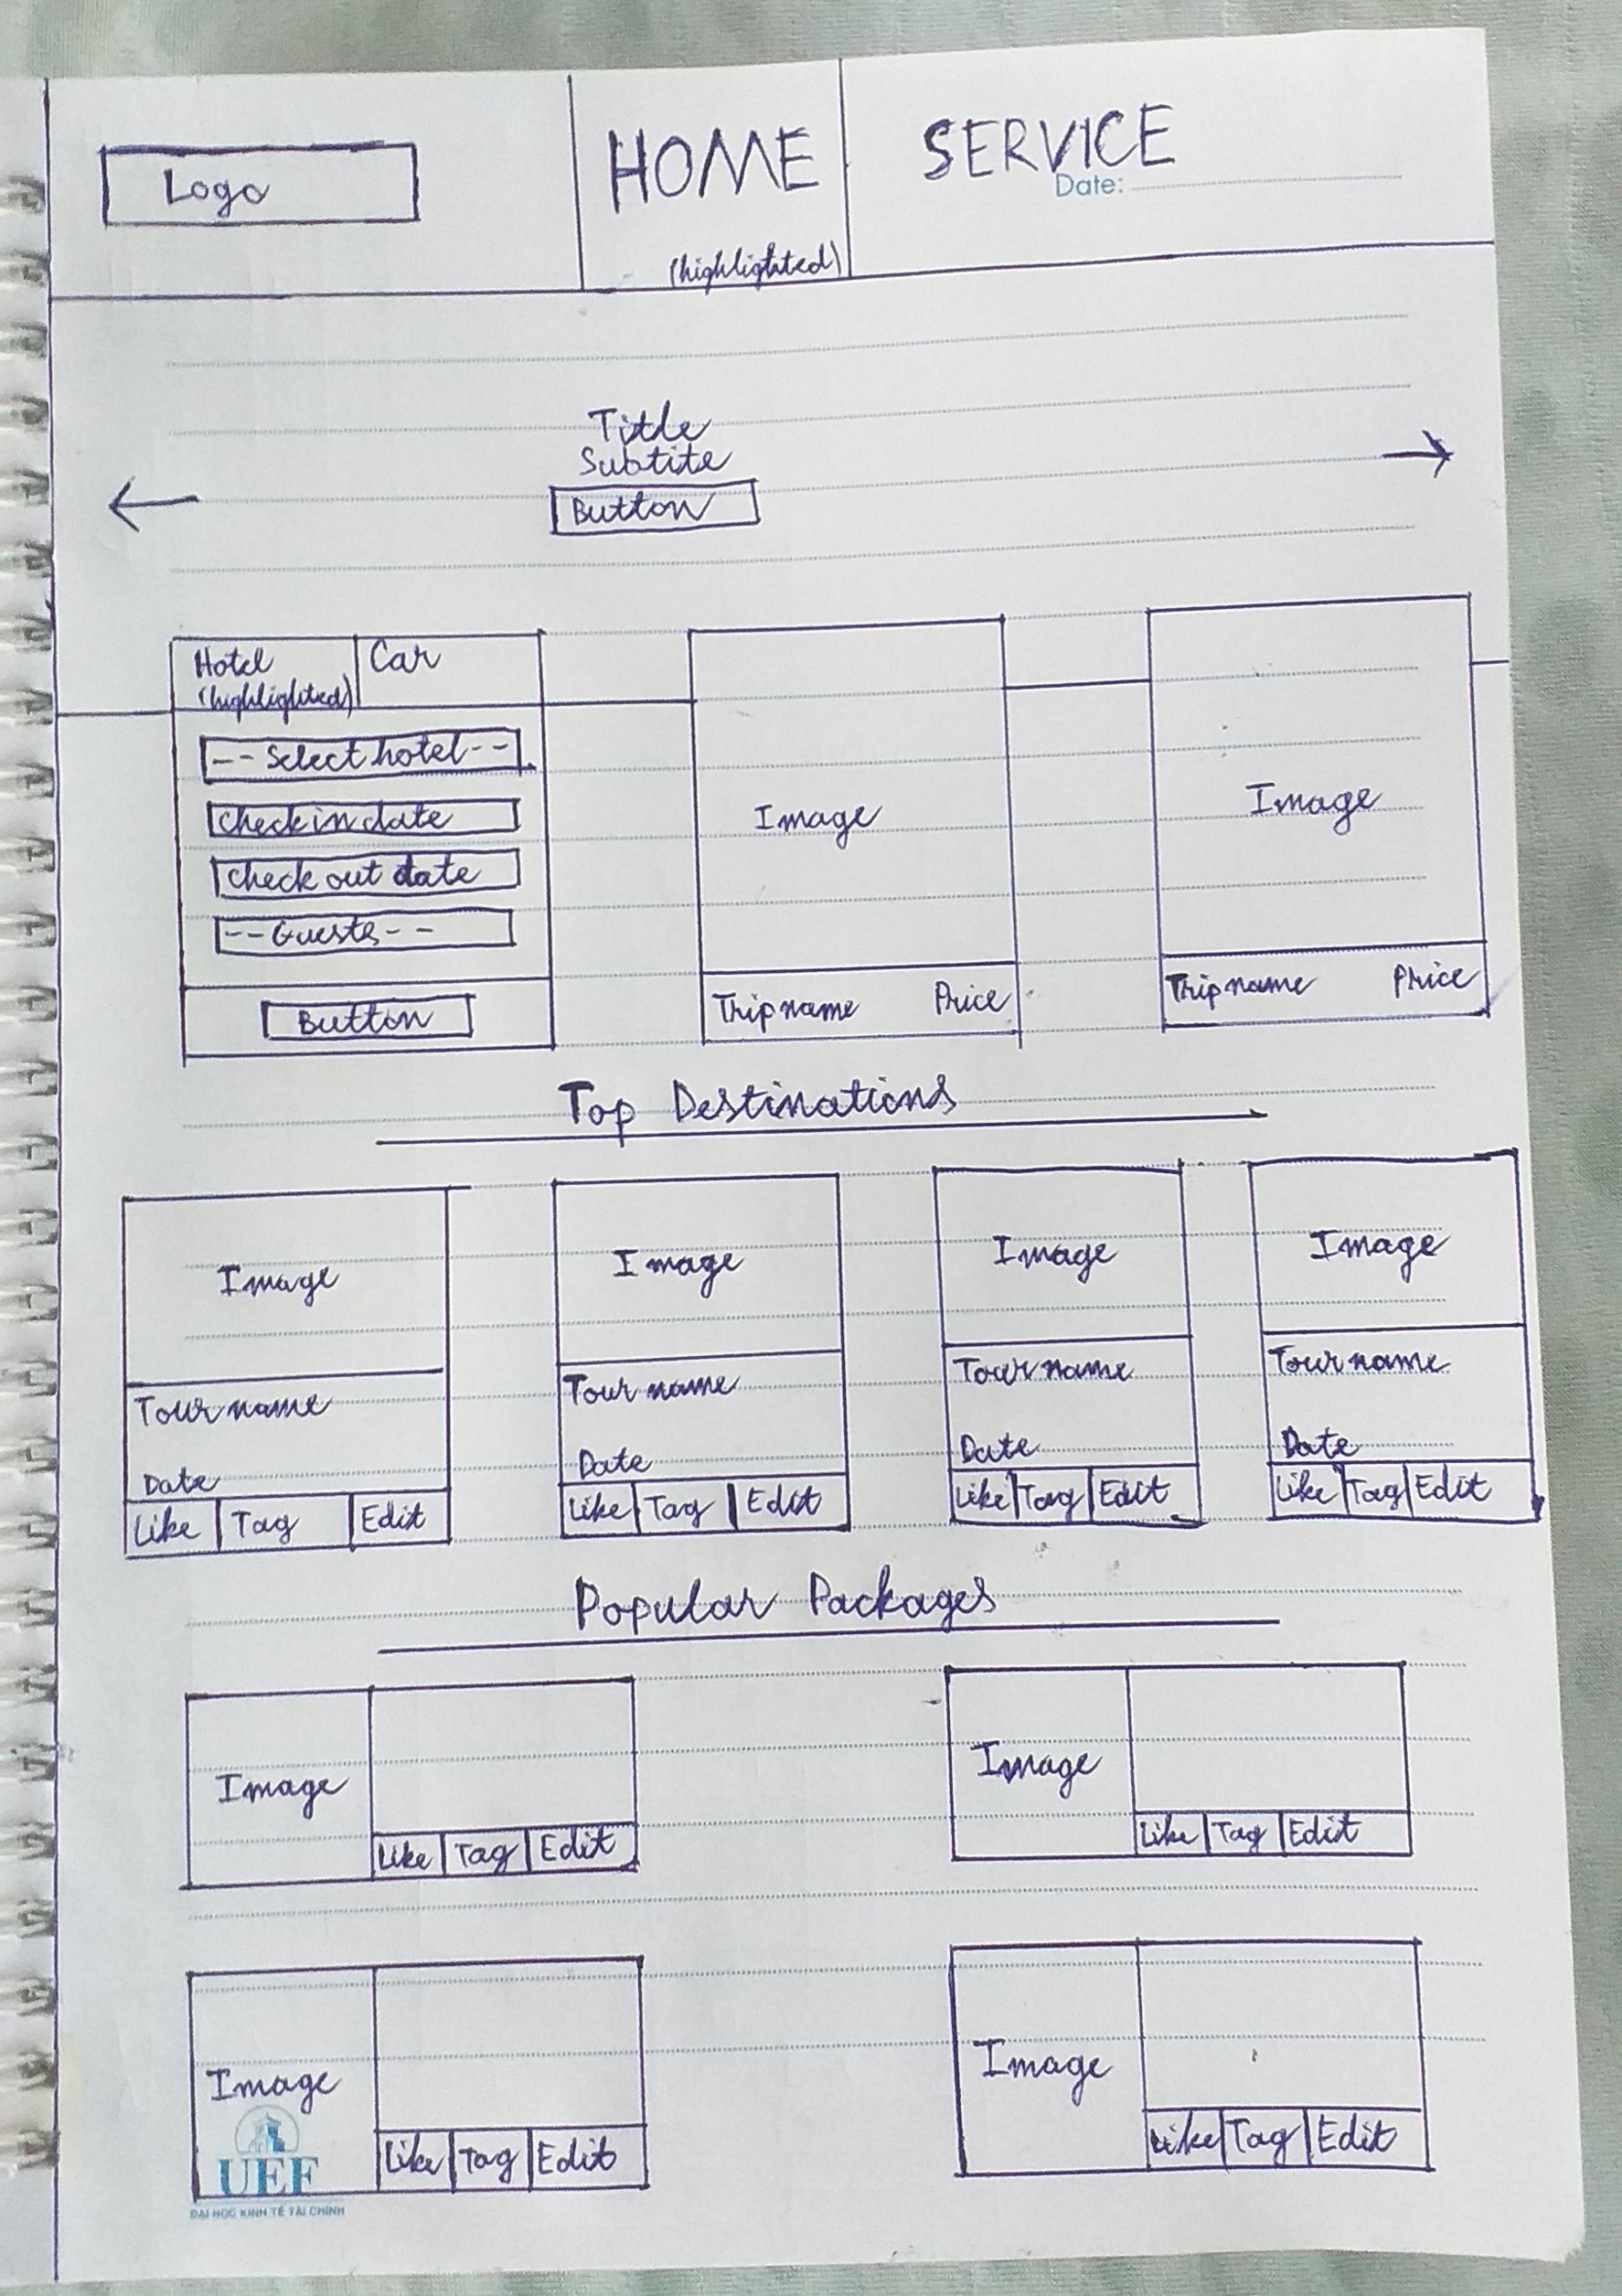 Logo
HOME
SERVICE
Date:
(highlighted)
Title
Subtite
Button
Hotel
Car
(highlighted)
-- Select hotel --
Check in date
Check out date
-- Guests --
Button
Image
Trip name Price
Image
Trip name Price
Top Destinations
Image
Tour name
Date
Like Tag Edit
Image
Tour name
Date
Like Tag Edit
Image
Tour name
Date
Like Tag Edit
Image
Tour name
Date
Like Tag Edit
Popular Packages
Image
Like Tag Edit
Image
Like Tag Edit
Image
Like Tag Edit
Image
Like Tag Edit
UEF
ĐẠI HỌC KINH TẾ TÀI CHÍNH